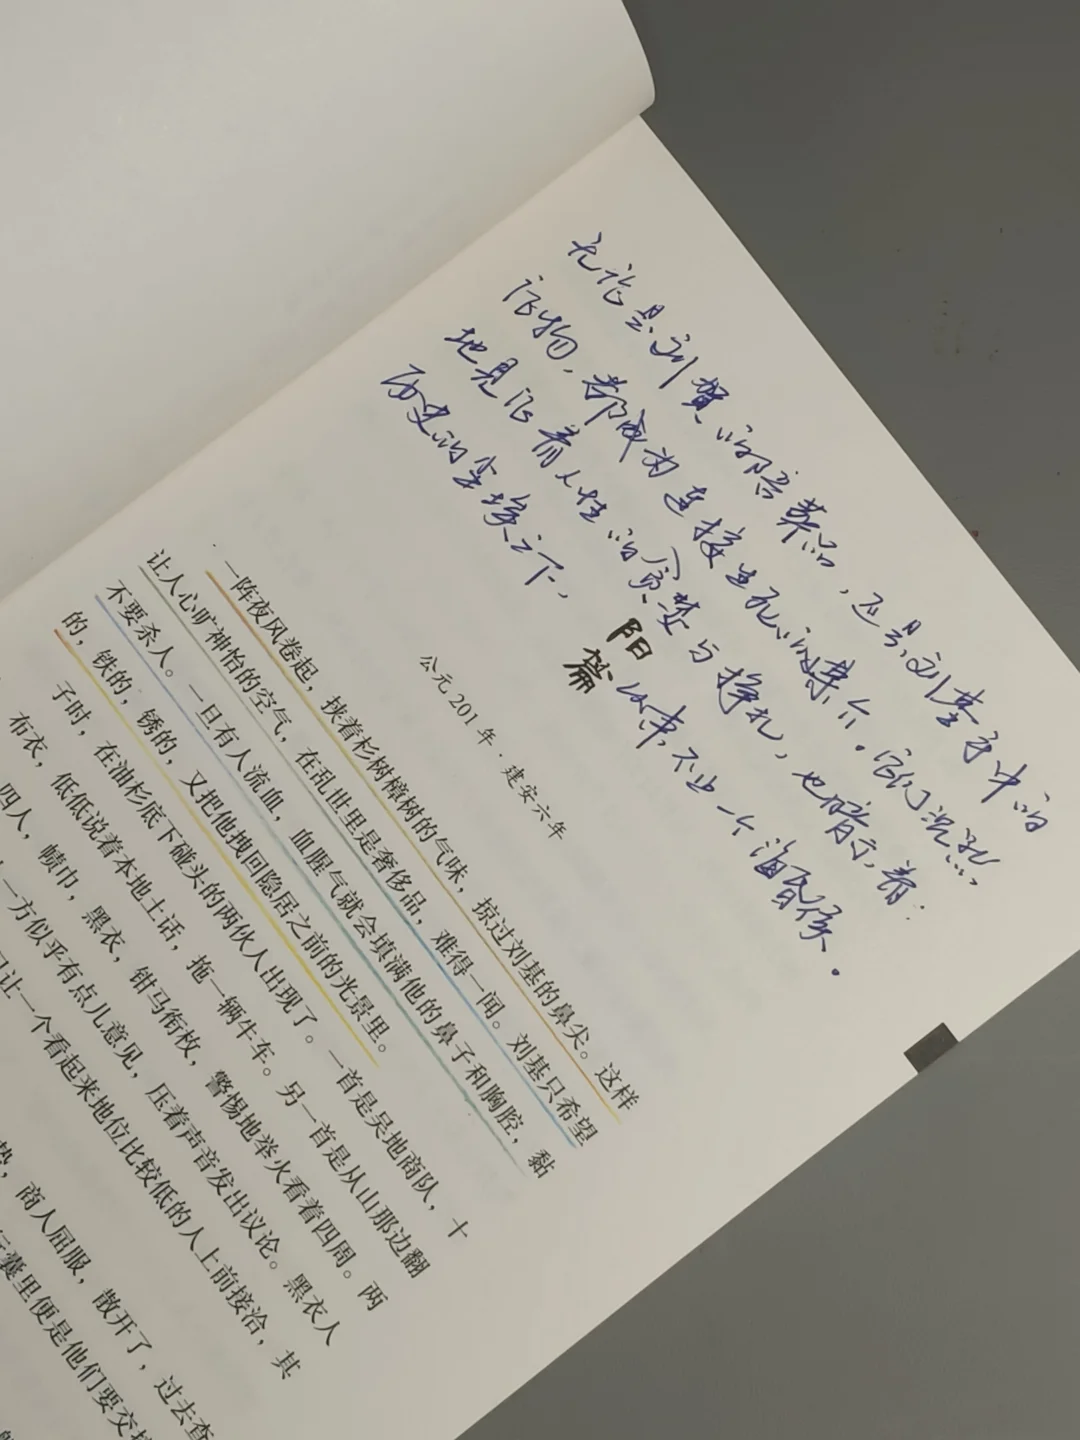 无论是刘贺的陪葬品，还是刘基手中的
证物，都成为连接生死的媒介。它们沉默
地见证着人性的贪婪与挣扎，也暗示着：
历史的尘埃之下，
从来不止一个海昏侯。
阳
篇
公元 201 年 · 建安六年
一阵夜风卷起，挟着杉树樟树的气味，掠过刘基的鼻尖。这样
让人心旷神怡的空气，在乱世里是奢侈品，难得一闻。刘基只希望
不要杀人。一旦有人流血，血腥气就会填满他的鼻子和胸腔，黏
的，铁的，锈的，又把他拽回隐居之前的光景里。
子时，在油杉底下碰头的两伙人出现了。一首是吴地商队，十
布衣，低低说着本地土话，拖一辆牛车。另一首是从山那边翻
四人，帻巾，黑衣，钳马衔枚，警惕地举火看着四周。两
一方似乎有点儿意见，压着声音发出议论。黑衣人
让一个看起来地位比较低的人上前接洽，其
商人屈服，散开了，过去查
囊里便是他们要交接